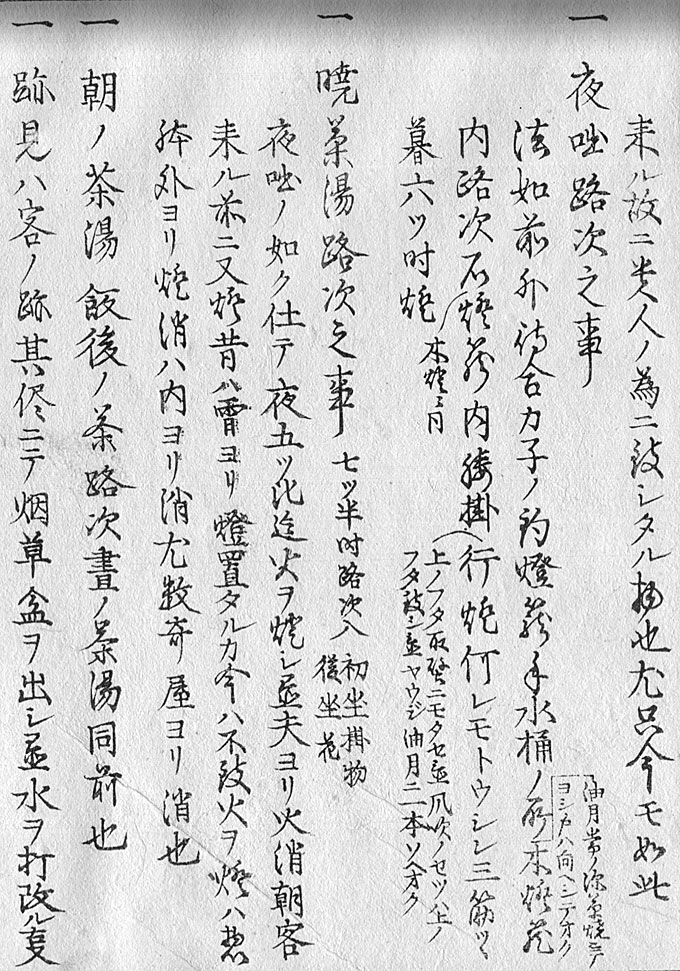 来ル故ニ貴人ノ為ニ致シタル物也尤只今モ如此
一 夜咄路次之事
法如前外待合カ子ノ釣燈籠手水桶ノ所木燈籠
油月常ノ深茶焼ニテ
ヨシ戸ハ向ヘシテオク
内路次石燈籠内腰掛行燈何レモトウシン三筋ツヽ
上ノフタ取壁ニモタセ置爪吹ノセツハ上ノ
フタ致シ置ヤウジ油月ニ二本ソヘオク
暮六ツ时燈
木燈ニ月
一 暁茶湯路次之事 七ツ半时路次入
初坐掛物
後坐花
夜咄ノ如ク仕テ夜五ツ比迄火ヲ燈シ置夫ヨリ火消朝客
来ル前ニ又燈昔ハ霄ヨリ燈置タルカ今ハ不致火ヲ燈ハ惣
躰外ヨリ燈消ハ内ヨリ消尤数奇屋ヨリ消也
一 朝ノ茶湯飯後ノ茶路次晝ノ茶湯同前也
一 跡見ハ客ノ跡其侭ニテ烟草盆ヲ出シ置水ヲ打改ル